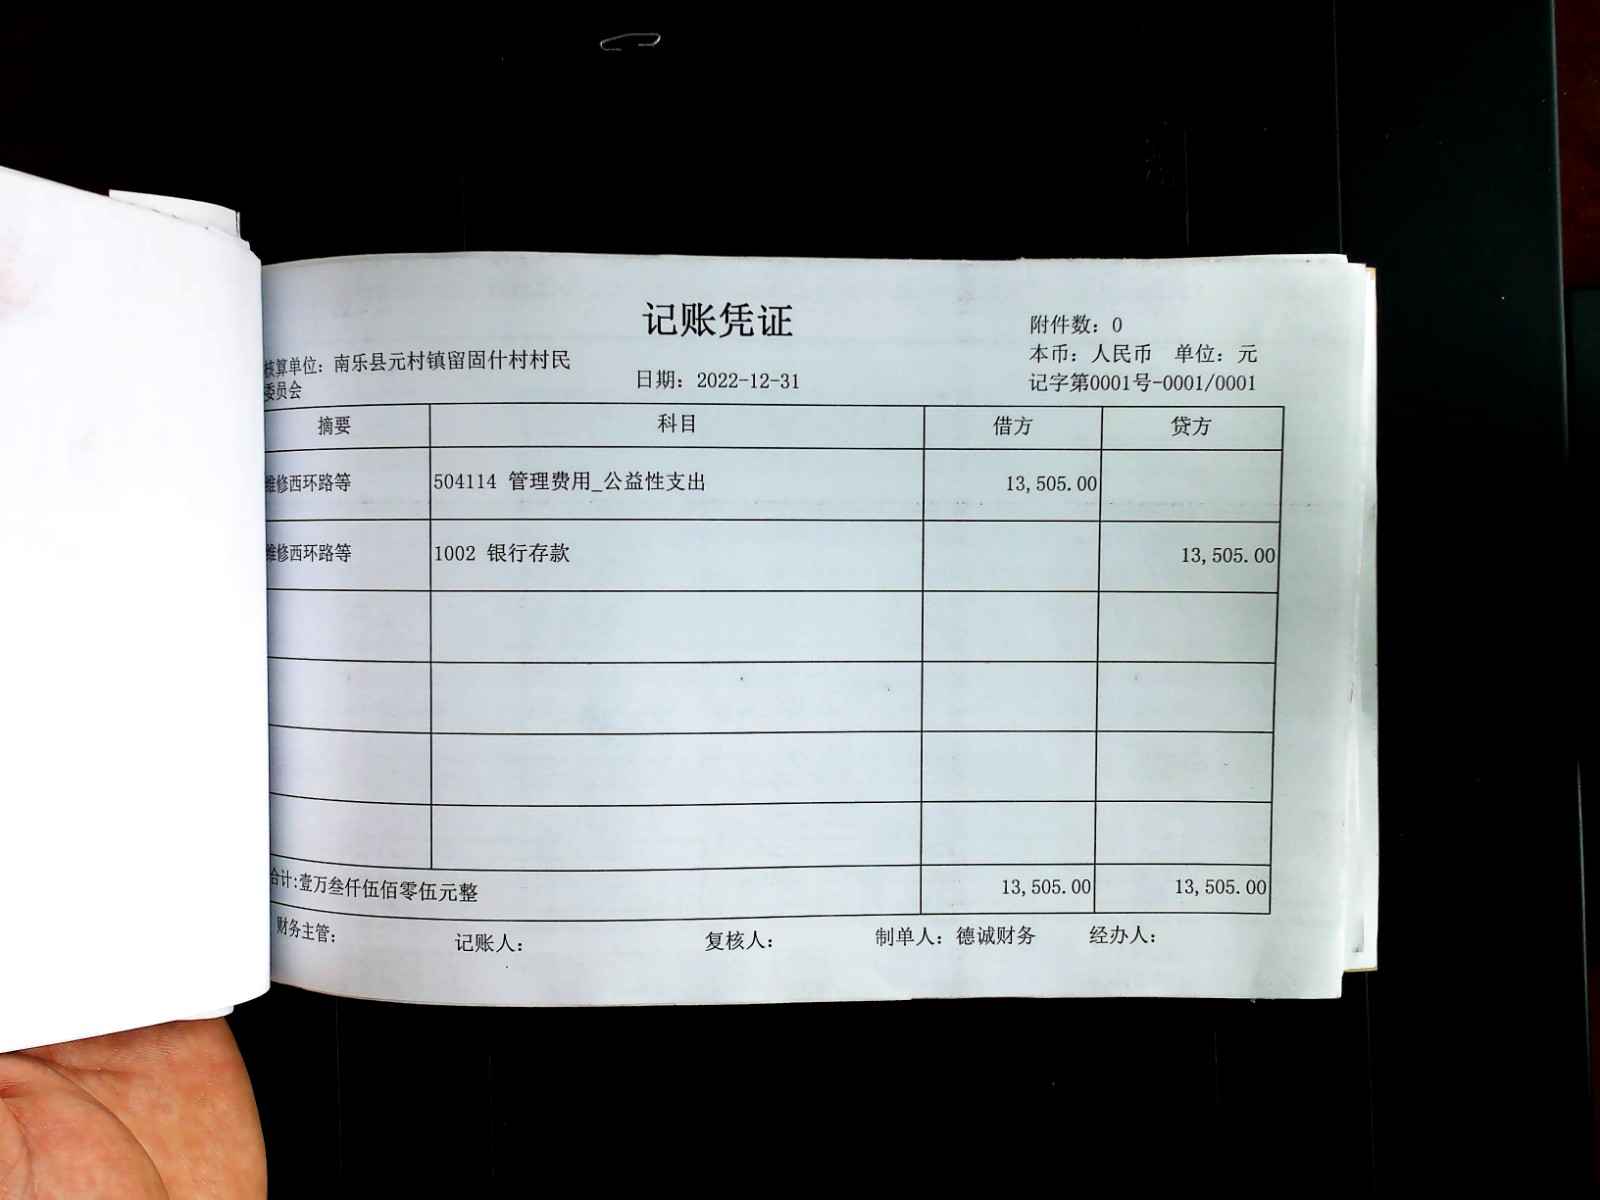 记账凭证
附件数：0
核算单位：南乐县元村镇留固什村村民
委员会
日期：2022-12-31
本币：人民币 单位：元
记字第0001号-0001/0001
摘要 科目 借方 贷方
维修西环路等 504114 管理费用_公益性支出 13,505.00
维修西环路等 1002 银行存款 13,505.00
合计:壹万叁仟伍佰零伍元整 13,505.00 13,505.00
财务主管： 记账人： 复核人： 制单人：德诚财务 经办人：